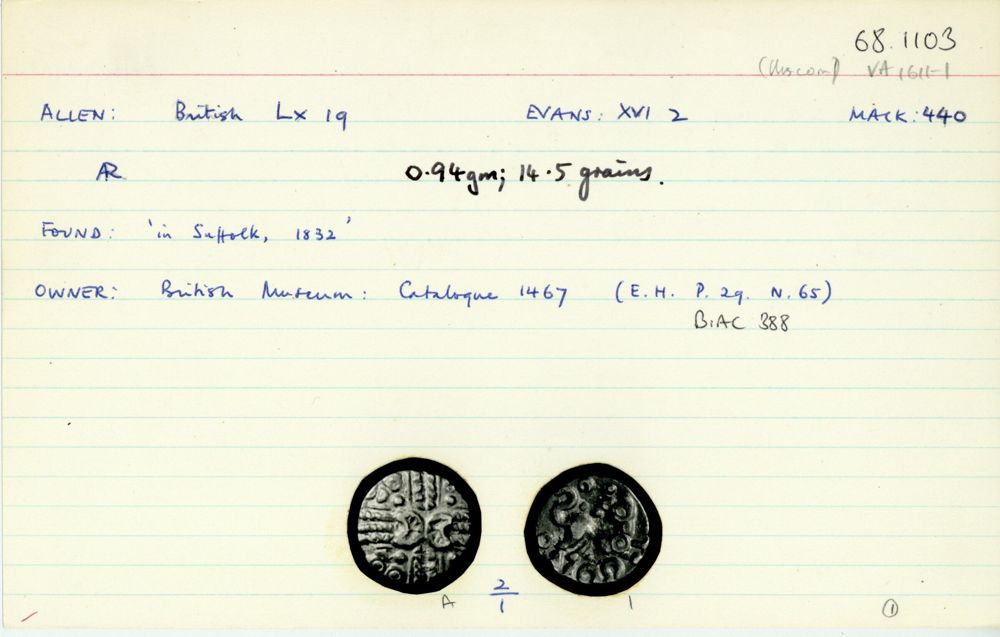 68.1103
VA 1611-1
ALLEN: British LX 19 EVANS: XVI 2 MACK: 440
AR 0.94gm; 14.5 grains.
FOUND: 'in Suffolk, 1832'
OWNER: British Museum: Catalogue 1467 (E.H. P. 29. N. 65)
BMC 388
A 2/1 1 1